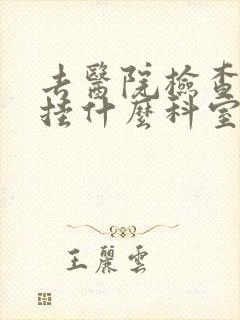 去醫院檢查
掛什麼科室
王麗雲